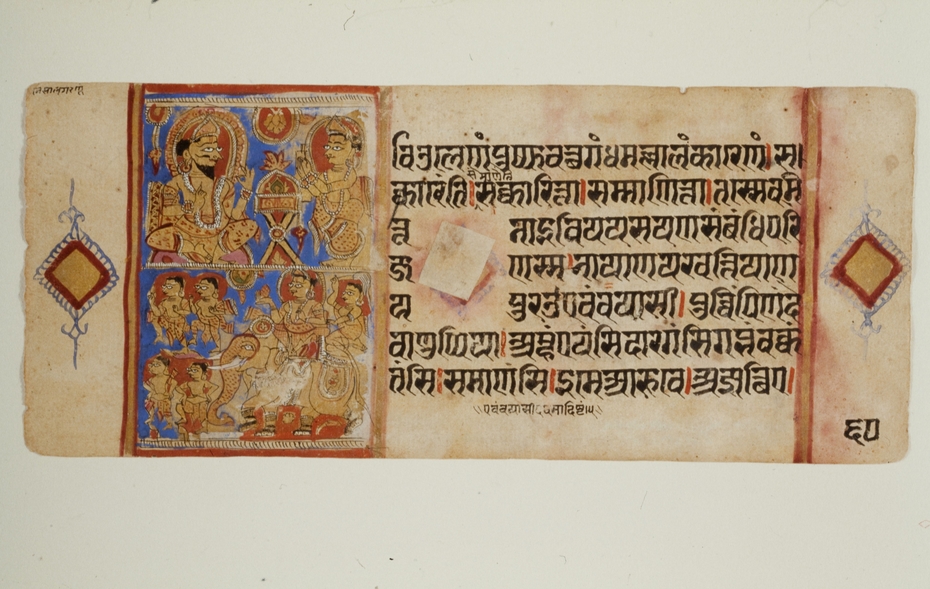 विउलेणं पुप्फवत्थगंधमल्लालंकारेणं। स
क्कारेंति। सक्कारित्ता। सम्माणित्ता। तस्सेव मि
त्त नाइनिययसयणसंबंधिपरि
ज णस्स नायाणयखत्तियाण
य पुरउ एवं वयासी। पुव्विंपिणंदे
वाणुप्पिया। अम्हंएयंसिदारगंसिगब्भंवक्कं
तंसि। समाणंसि। इमेआरूवे। अज्झत्थिए।
६०